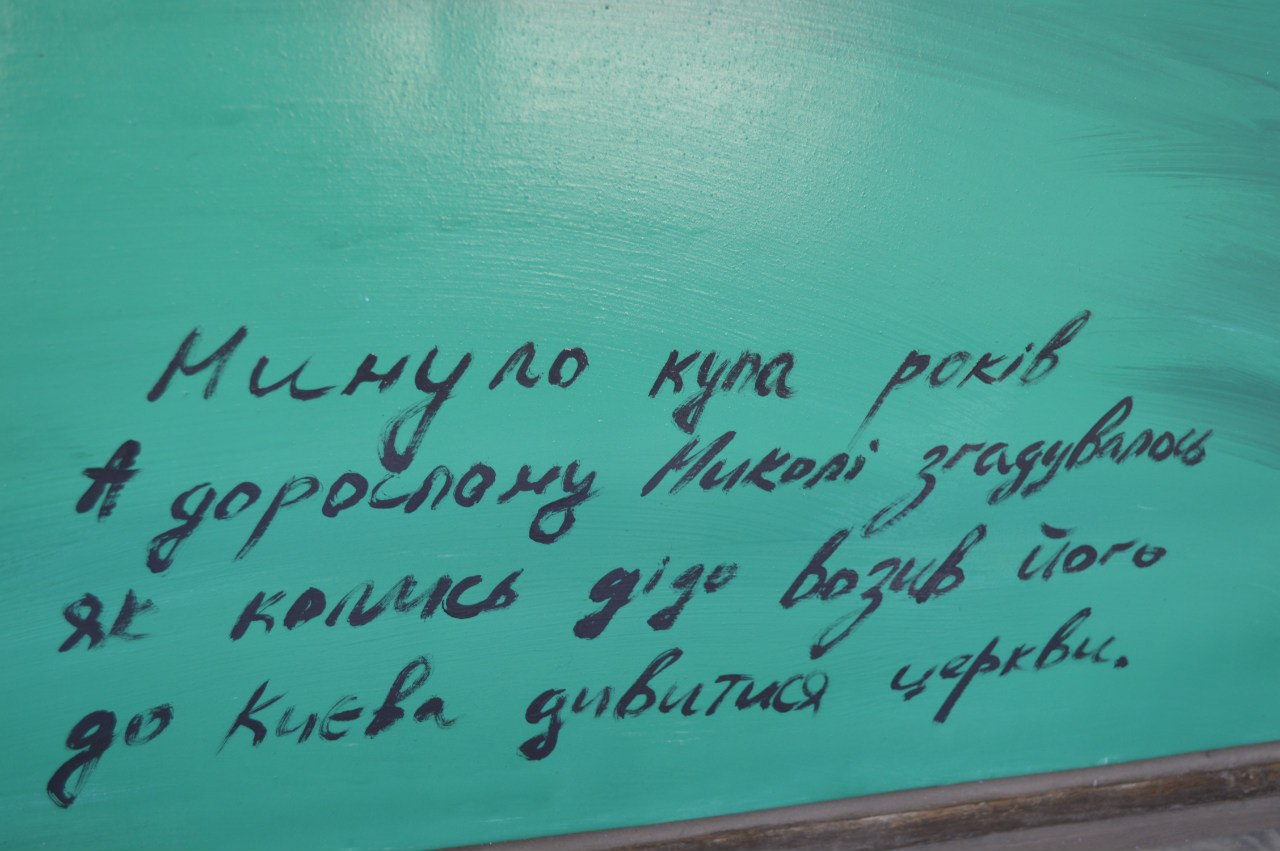 Минуло купа років
А дорослому Миколі згадувалось
як колись дідо возив його
до Києва дивитися церкви.